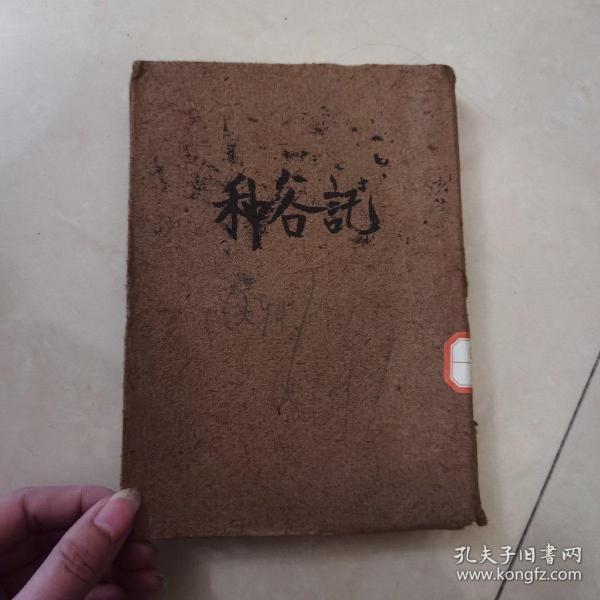 种谷記
孔夫子旧書网
www.kongfz.com